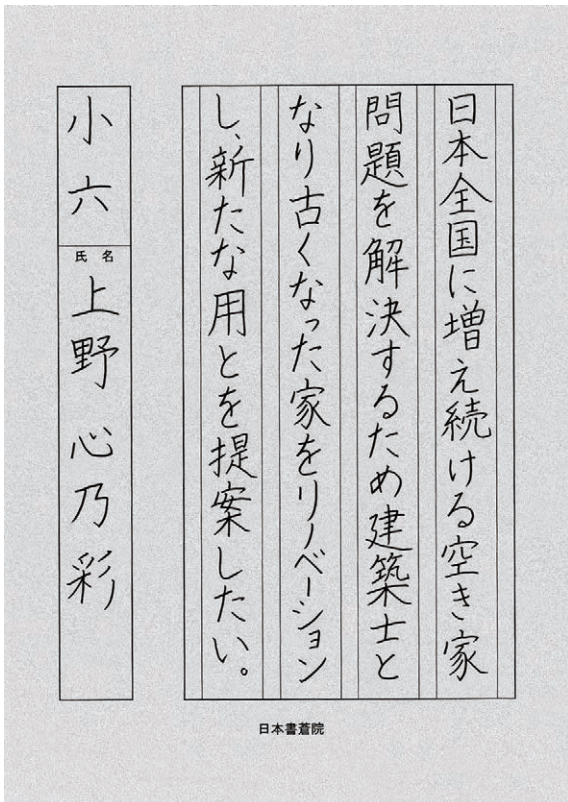 日本全国に増え続ける空き家
問題を解決するため建築士と
なり古くなった家をリノベーション
し、新たな用とを提案したい。
小六
氏名
上野心乃彩
日本書蒼院